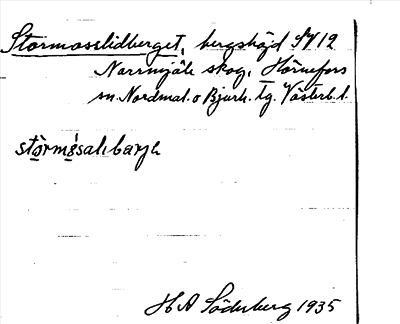 Stormosslidberget, bergshöjd SV 12
Norrmjöle skog, Hörnefors
sn. Nordmal. o Bjurh. tg. Västerb. l.
störmỳsalıbarjɛ
H A Söderberg 1935